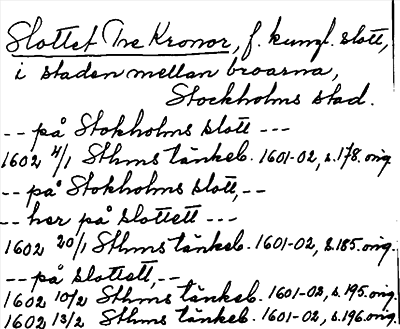 Slottet Tre Kronor, f. kungl. slott,
i staden mellan broarna,
Stockholms stad.
-- på Stokholms slott ---
1602 4/1 Sthms tänkeb. 1601-02, s.178. orig.
-- på Stokholms slott, --
-- her på slottett ---
1602 20/1 Sthms tänkeb. 1601-02, s.185. orig.
-- på slottett, --
1602 10/2 Sthms tänkeb. 1601-02, s.195. orig.
1602 13/2 Sthms tänkeb. 1601-02, s.196. orig.